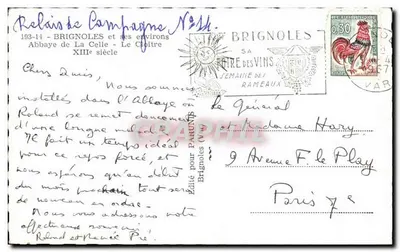 Relais de Campagne No 14.
183-14 - BRIGNOLES et ses environs
Abbaye de La Celle - Le Cloître
XIIIe siècle
Chers Amis, Nous sommes
installés dans l'Abbaye où
Roland se remet doucement
d'une longue
Il fait un temps idéal
pour ce repos forcé, et
nous espérons qu'au début
du mois prochain tout sera
de nouveau en ordre.
Nous vous adressons notre
affectueux souvenir,
Roland et
Edité pour PARUNIS
Brignoles (Var)
BRIGNOLES
SA
FOIRE DES VINS
SEMAINE DES
RAMEAUX
0,30
VAR
Le Général
et Madame Hary
9 Avenue F. le Play
Paris 7e